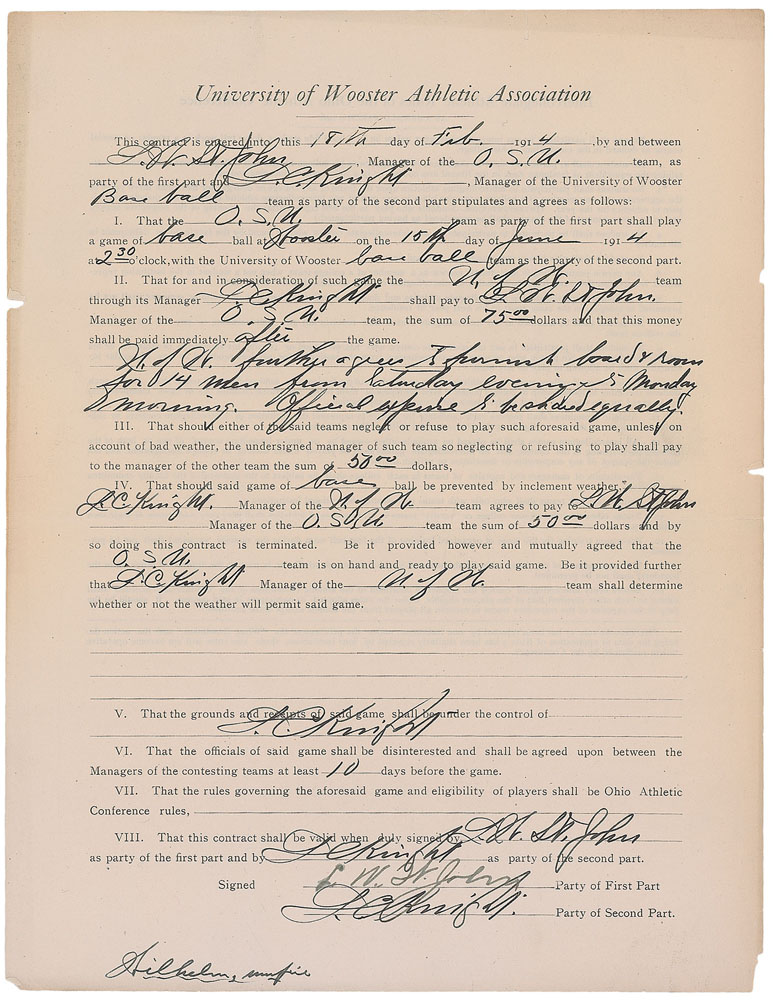 University of Wooster Athletic Association
This contract is entered into this 18th day of Feb. 1914 .by and between
L. W. St. John , Manager of the O. S. U. team, as
party of the first part and L. C. Knight , Manager of the University of Wooster
Base ball team as party of the second part stipulates and agrees as follows:
I. That the O. S. U. team as party of the first part shall play
a game of base ball at Wooster on the 15th day of June 1914
at 2 30 o'clock, with the University of Wooster base ball team as the party of the second part.
II. That for and in consideration of such game the U. of W. team
through its Manager L C Knight shall pay to L. W. St John.
Manager of the O. S. U. team, the sum of 75 00 dollars and that this money
shall be paid immediately after the game.
U. of W. further agrees to furnish board & room
for 14 men from Saturday evening to Monday
morning. Official expense to be shared equally.
III. That should either of the said teams neglect or refuse to play such aforesaid game, unless on
account of bad weather, the undersigned manager of such team so neglecting or refusing to play shall pay
to the manager of the other team the sum of 50 00 dollars,
IV. That should said game of base ball be prevented by inclement weather,
L. C. Knight. Manager of the U. of W. team agrees to pay to L. W. St John
Manager of the O. S. U. team the sum of 50 00 dollars and by
so doing this contract is terminated. Be it provided however and mutually agreed that the
O. S. U. team is on hand and ready to play said game. Be it provided further
that L. C. Knight Manager of the U. of W. team shall determine
whether or not the weather will permit said game.
V. That the grounds and receipts of said game shall be under the control of
L. C. Knight
VI. That the officials of said game shall be disinterested and shall be agreed upon between the
Managers of the contesting teams at least 10 days before the game.
VII. That the rules governing the aforesaid game and eligibility of players shall be Ohio Athletic
Conference rules,
VIII. That this contract shall be valid when duly signed by L. W. St. John
as party of the first part and by L C Knight as party of the second part.
Signed L. W. St. John Party of First Part
L. C. Knight. Party of Second Part.
Wilhelm, umpire